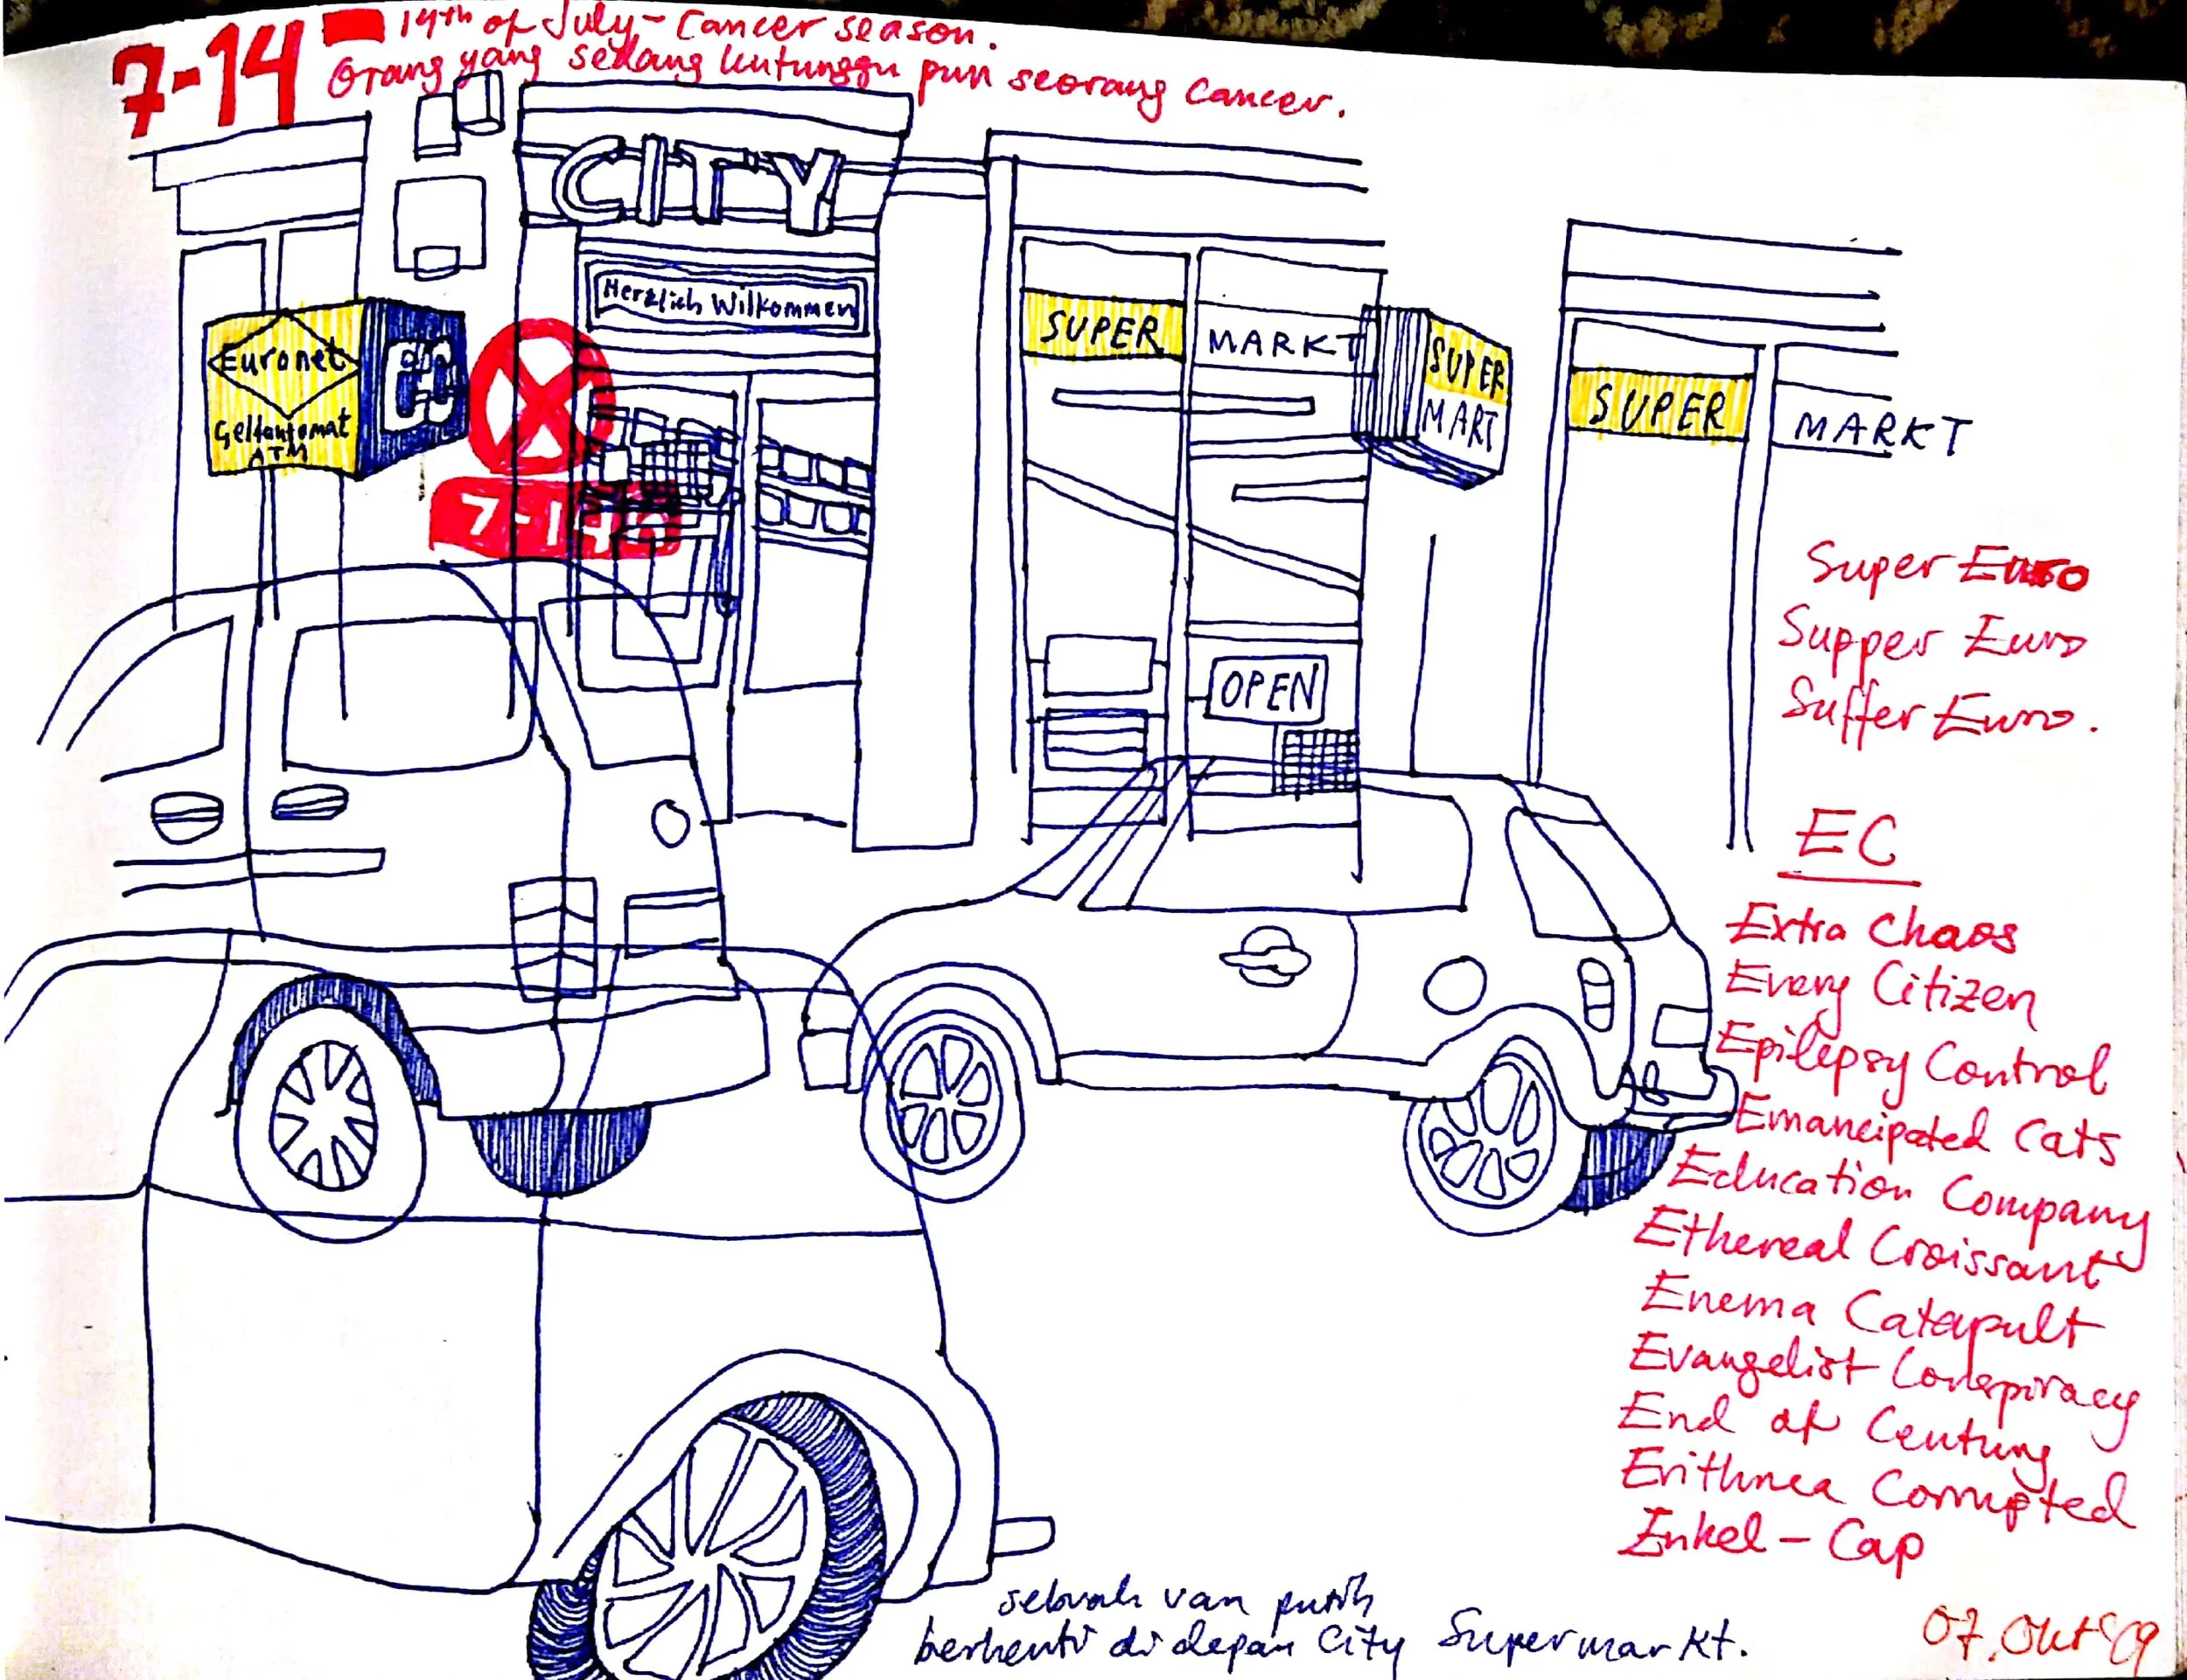 7-14
14th of July - Cancer season.
Orang yang sedang kutunggu pun seorang Cancer.
CITY
Herzlich Wilkommen
Euronet
Geltautomat
ATM
7-14h
SUPER
MARKT
SUPER
MART
SUPER
MARKT
OPEN
Super Euro
Supper Euro
Suffer Euro.
EC
Extra Chaos
Every Citizen
Epilepsy Control
Emancipated Cats
Education Company
Ethereal Croissant
Enema Catapult
Evangelist Conspiracy
End of Century
Erithnea Corrupted
Enkel - Cap
sebuah van putih
berhenti di depan City Supermarkt.
07. Okt '19